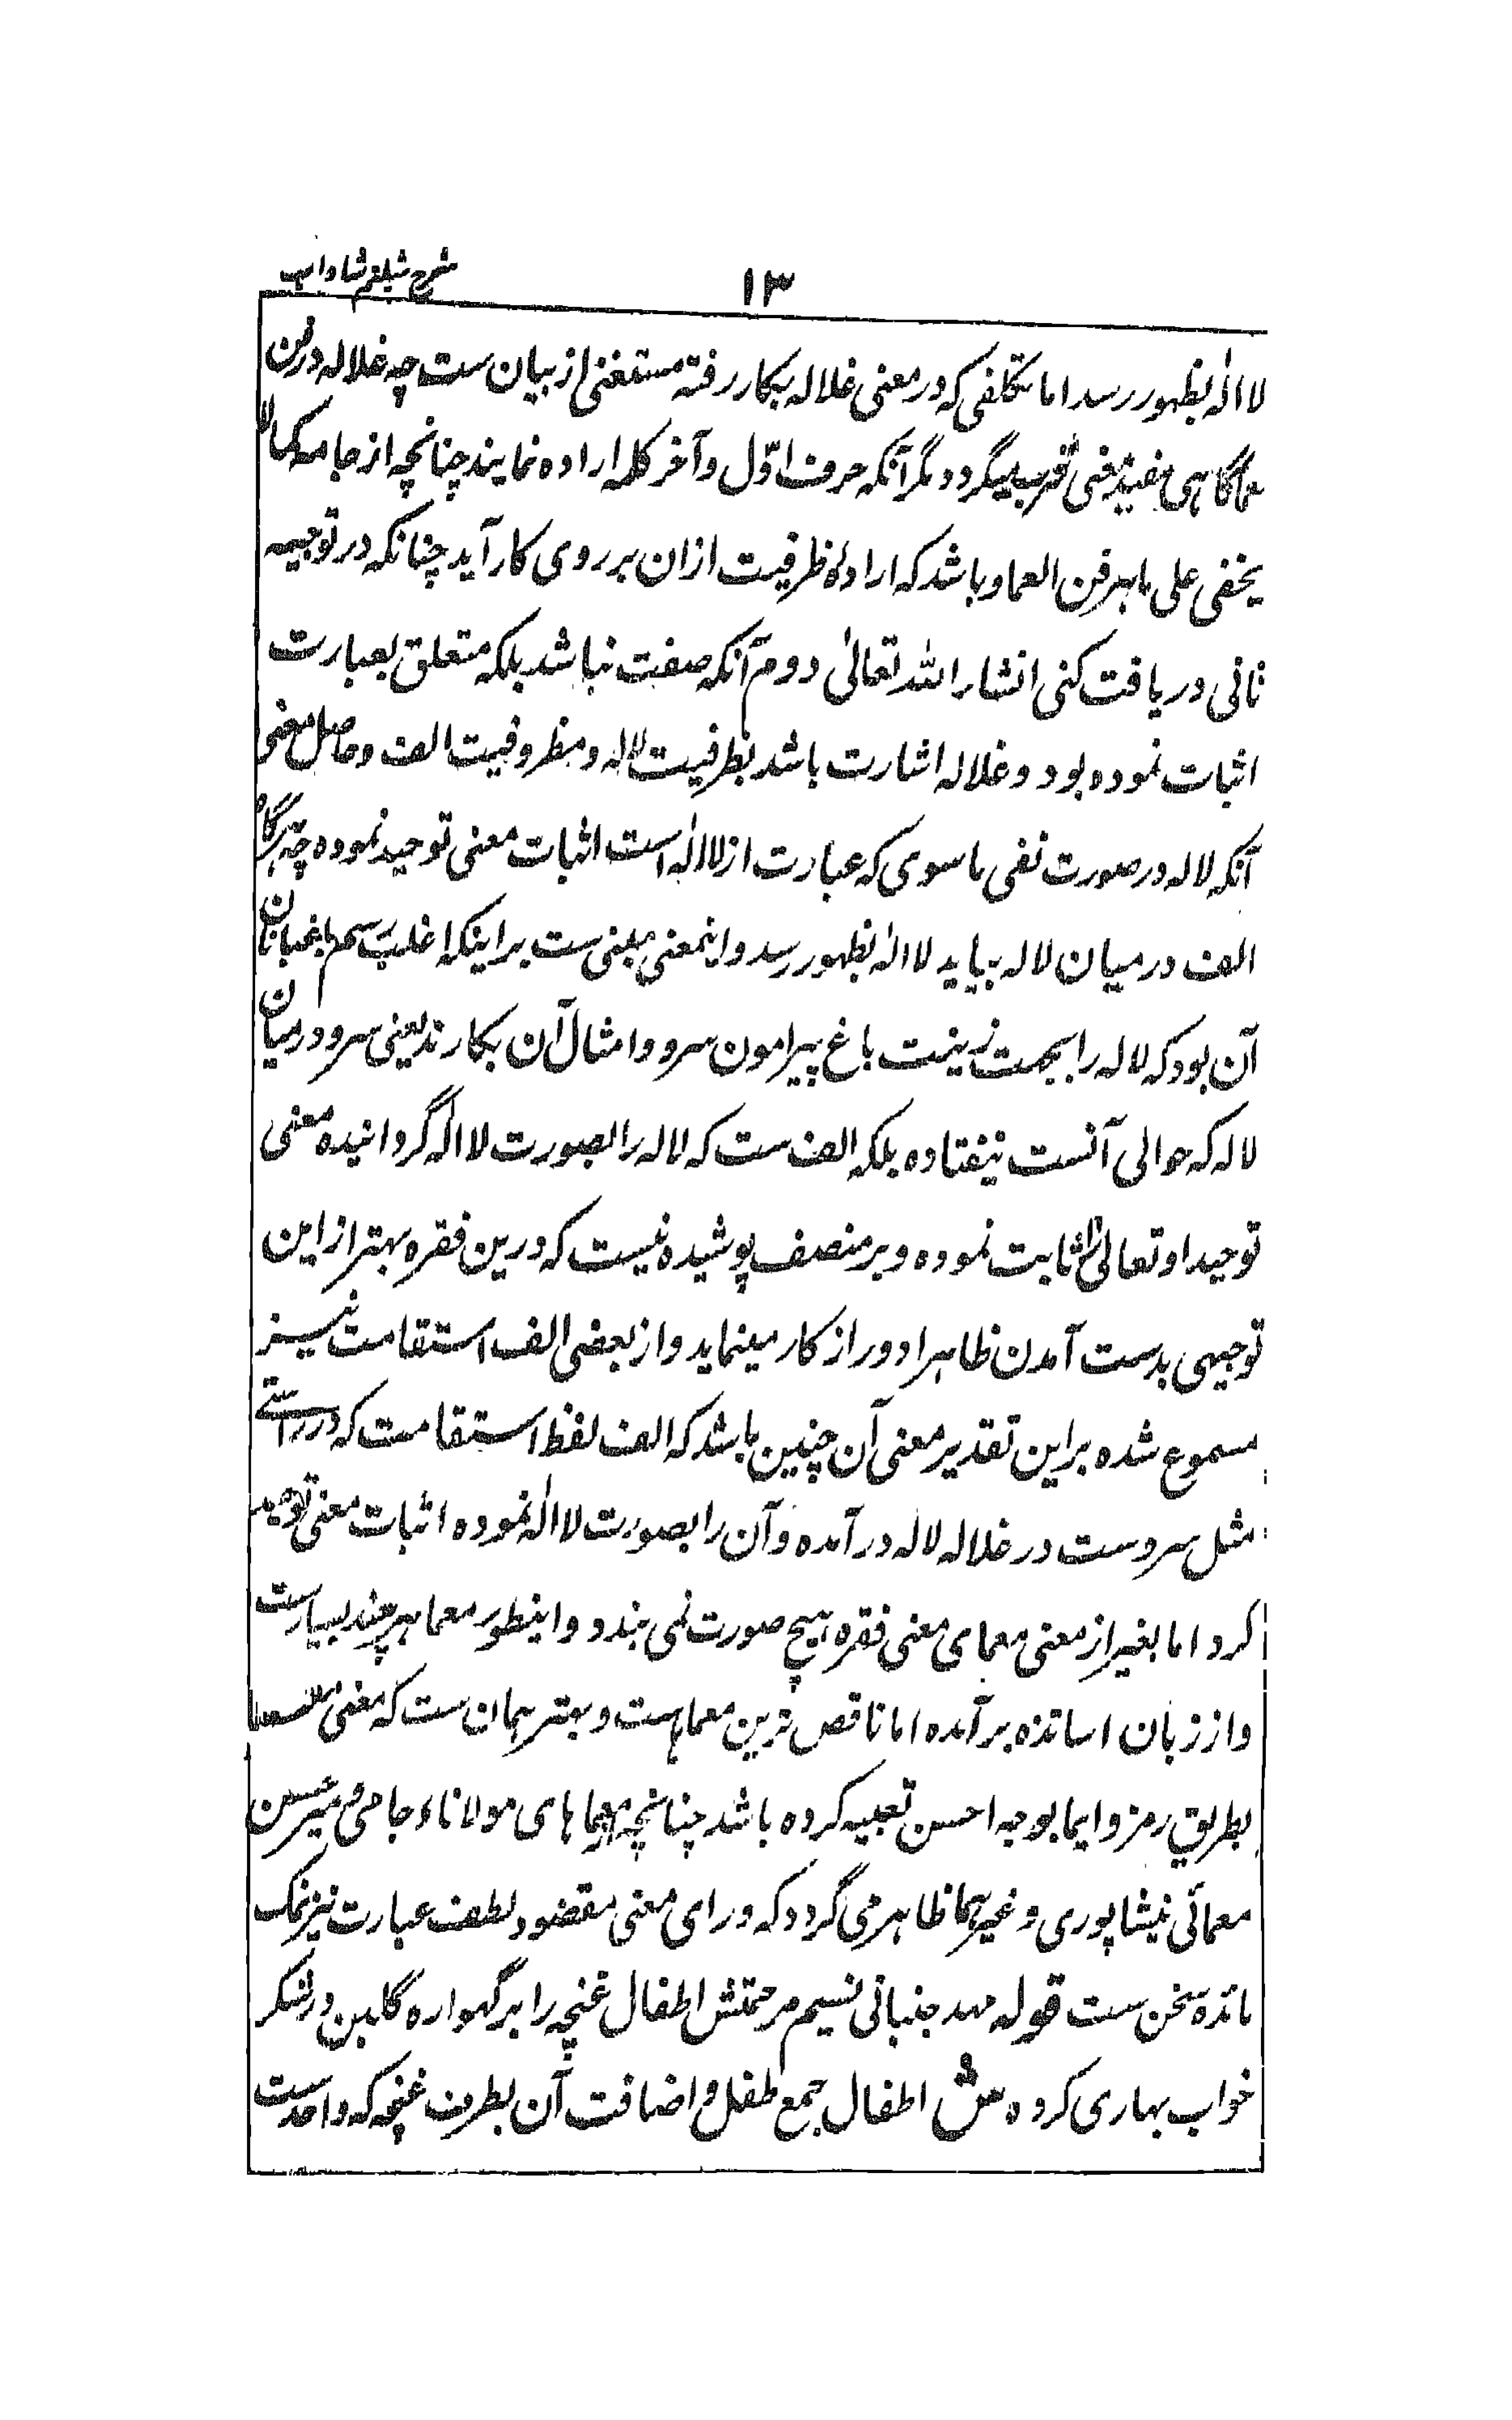 شرح شبنم شاداب
۱۳
لا الٰه بظهور رسد اما تکلفی که در معنی غلاله بکار رفته مستغنی از بیان ست چه غلاله درین
معما گاهی مفید معنی میگردد مگر آنکه حرف اوّل و آخر کلمه اراده نمایند چنانچه از جامه کما لا
یخفی علی ماهر فن المعما و باشد که ارادهٔ ظرفیت ازان بر روی کار آید چنانکه در توجیه
ثانی دریافت کنی انشار الله تعالیٰ دوم آنکه صفت نباشد بلکه متعلق بعبارت
اثبات نموده بود و غلاله اشارت باشد بظرفیت لاله و مظروفیت الف و حاصل معنی
آنکه لاله در صورت نفی ماسوی که عبارت از لا الٰه است اثبات معنی توحید نموده چه هرگاه
الف در میان لاله بیاید لا الٰه بظهور رسد و اینمعنی مبنی ست بر اینکه اغلب رسم باغبانان
آن بود که لاله را بجهت زینت باغ پیرامون سرو و امثال آن بکارند یعنی سرو در میان
لاله که حوالی آنست نیفتاده بلکه الف ست که لاله را بصورت لا الٰه گردانیده معنی
توحید او تعالیٰ را ثابت نموده و بر منصف پوشیده نیست که درین فقره بهتر از این
توجیهی بدست آمدن ظاهرا دور از کار مینماید و از بعضی الف استقامت نیز
مسموع شده براین تقدیر معنی آن چنین باشد که الف لفظ استقامت که در راستے
مثل سروست در غلاله لاله در آمده و آن را بصورت لا الٰه نموده اثبات معنی توحید
کرد اما بغیر از معنی معمای معنی فقره هیچ صورت نمی بندد و اینطور معما هرچند بسیارست
و از زبان اساتذه برآمده اما ناقص ترین معماهست و بهتر همان ست که معنی معما
بطریق رمز و ایما بوجه احسن تعبیه کرده باشد چنانچه از معماهای مولاناء جامی و میر حسین
معمائی نیشاپوری و غیرهما ظاهر می گردد که ورای معنی مقصود لطف عبارت نیز نمک
مائدهٔ سخن ست قوله مهد جنبانی نسیم مرحمتش اطفال غنچه را بر گهواره گلبن در شکر
خواب بهاری کرده ش اطفال جمع طفل و اضافت آن بطرف غنچه که واحدست